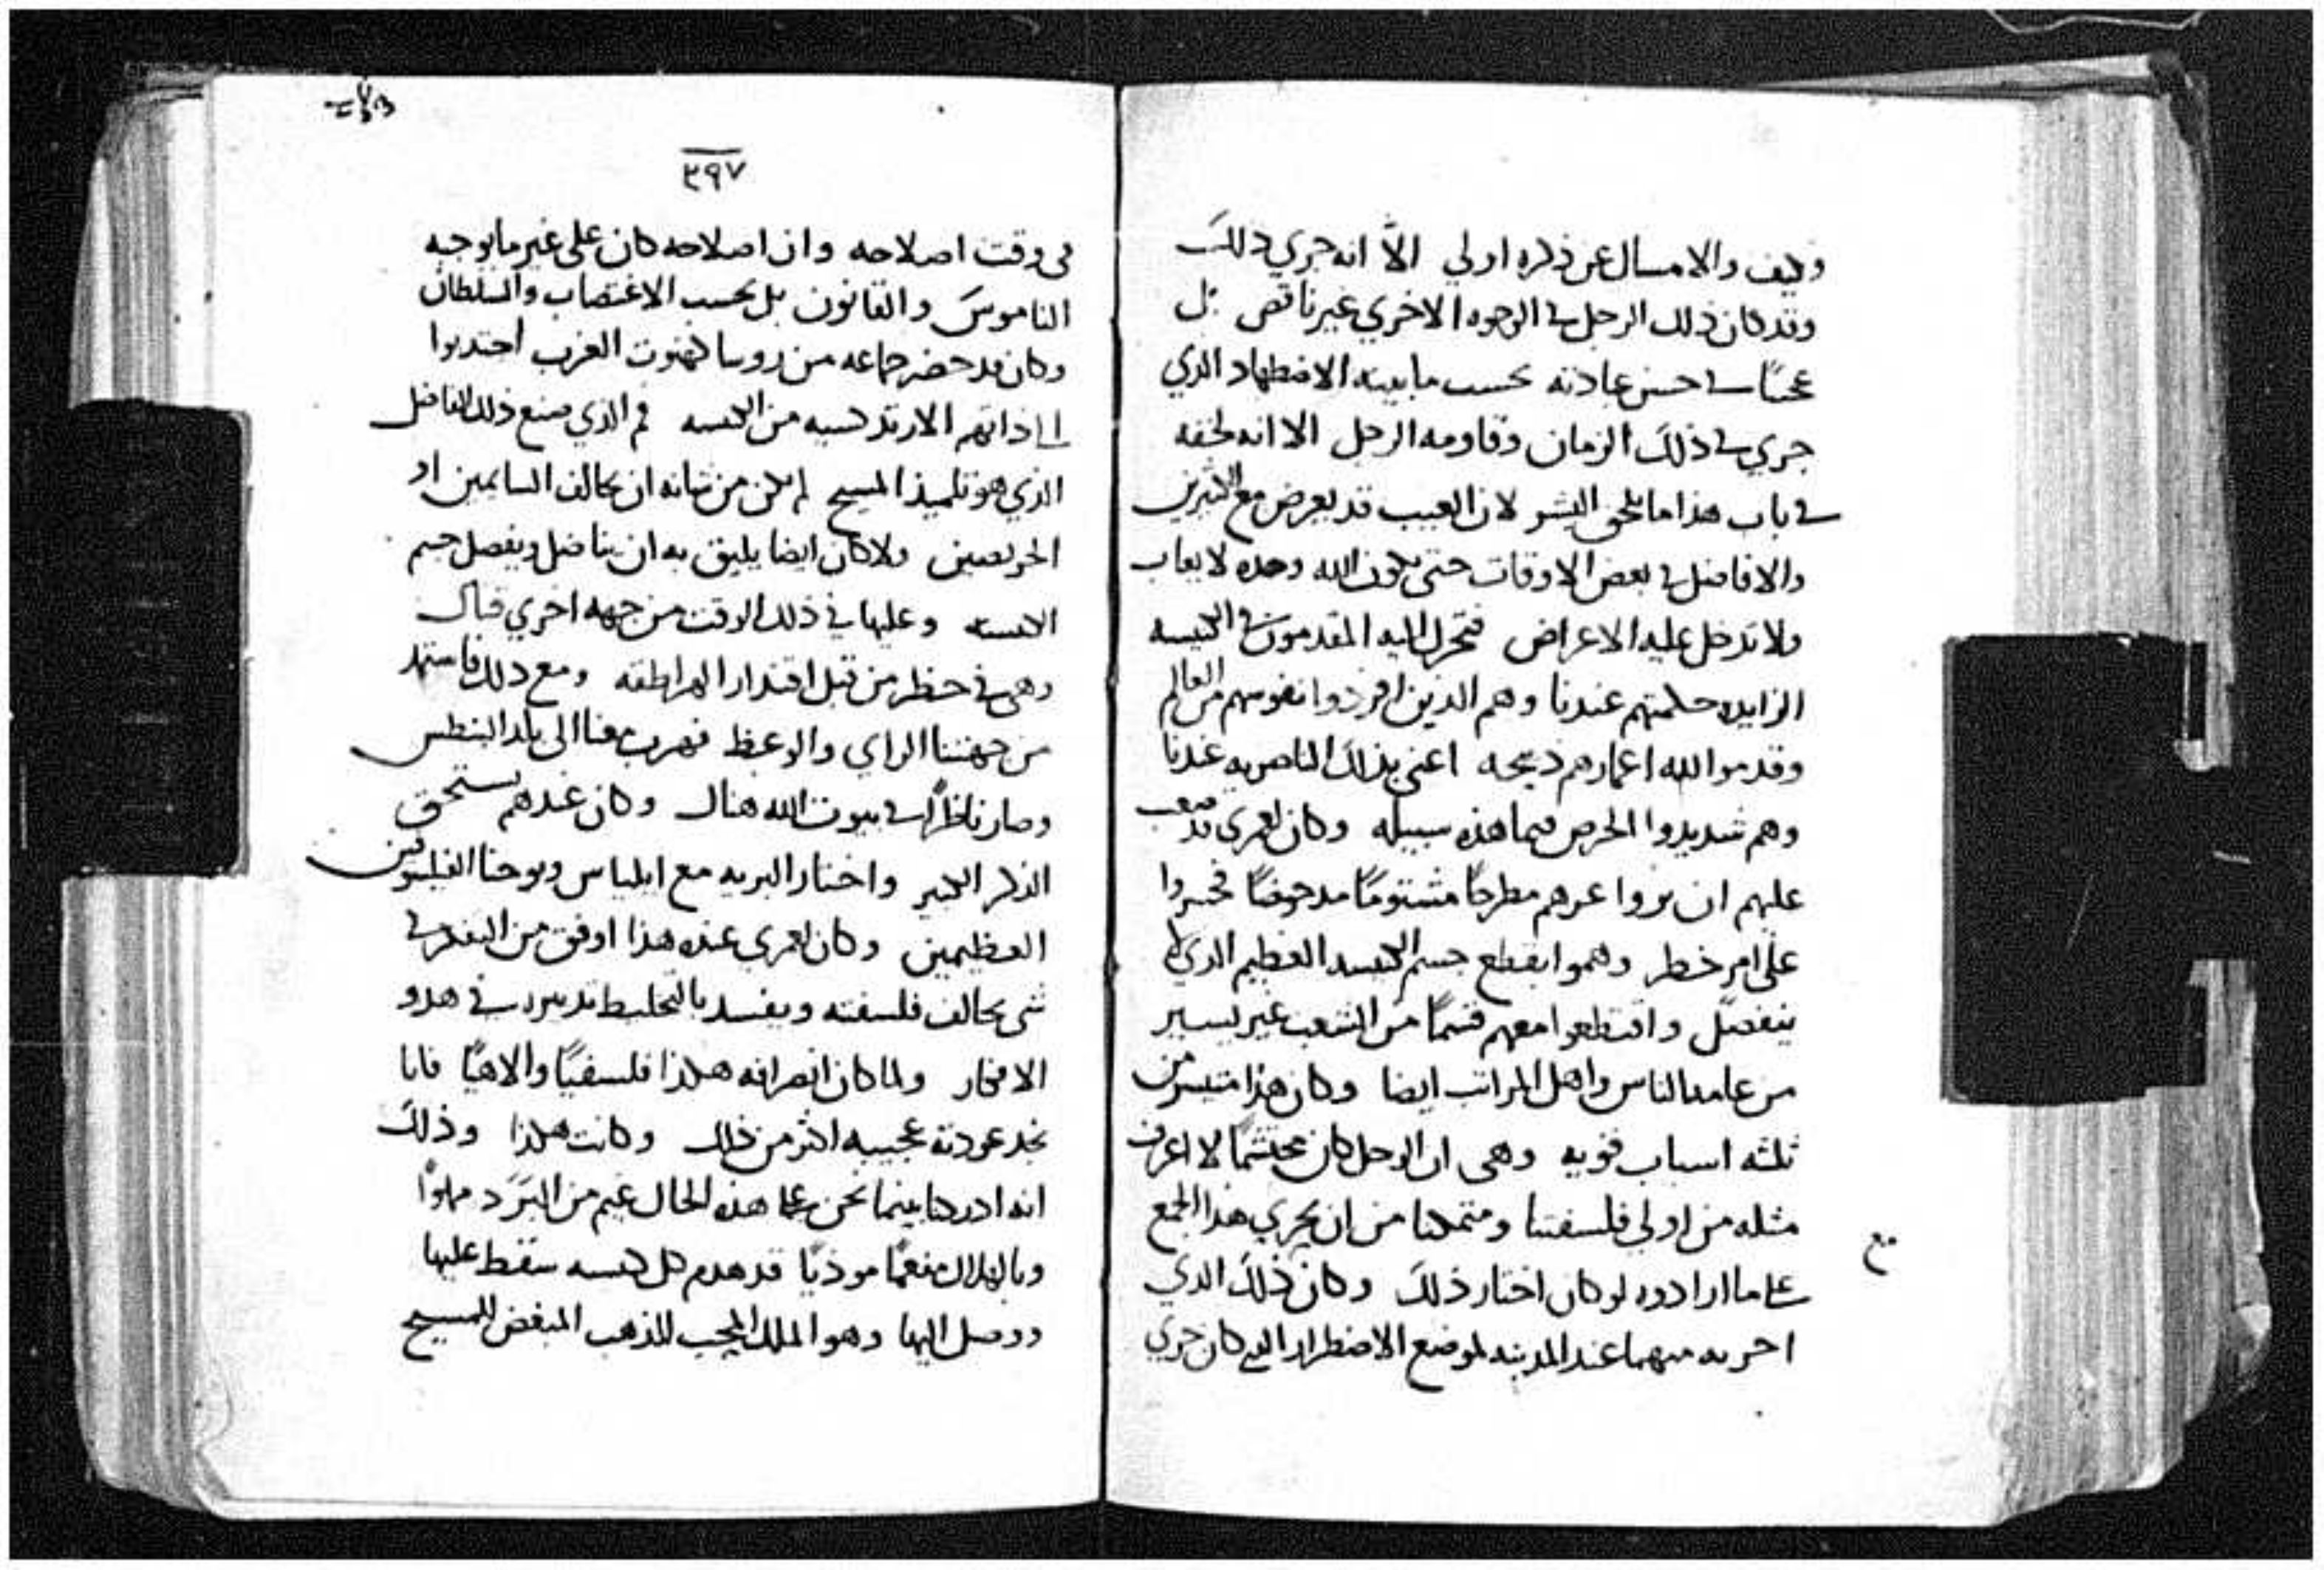 وكيف والامساك عن ذكره اولي الاَّ انه جري ذلكَ
وقد كان ذلك الرجل في الوجوه الاخري غير ناقص بل
عجبًا في حسن عبادته بحسب ما بينه الاضطهاد الذي
جري في ذلكَ الزمان وقاومه الرجل الا انه لحقه
في باب هذا ما يلحق البشر لان العيب قد يعرض مع الكثيرين
والافاضل في بعض الاوقات حتى يكون الله وحده لا يعاب
ولا تدخل عليه الاعراض فتحرك اليه المقدمون في الكنيسه
الزايده حكمتهم عندنا وهم الدين افردوا نفوسهم من العالم
وقدموا لله اعمارهم ذبيحه اعني بذلك الناصريه عندنا
وهم شديدوا الحرص فيما هذه سبيله وكان لعمري قد صعب
عليهم ان يروا عزهم مطرحًا مشتومًا مدحوضًا فجسروا
على امر خطر وهموا بقطع جسم الكنيسه العظيم الدي لا
ينفصل واقتطعوا معهم قسمًا من الشعب غير يسير
من عامه الناس واهل المراتب ايضا وكان هذا متيسر من
ثلثه اسباب قويه وهى ان الرجل كان محتشمًا لا اعرف
مثله من اولي فلسفتنا ومتمكنا من ان يجري هذا الجمع
على ما ارادوه لو كان اختار ذلكَ وكان ذلكَ الدي
عند المدينه لموضع الاضطراب الدي كان جري
٣٩٧
في وقت اصلاحه وان اصلاحه كان على غير ما يوجبه
الناموسَ والقانون بل بحسب الاغتصاب والسلطان
وكان قد حضر جماعه من روسا كهنوت الغرب اجتدبوا
الى ذاتهم الارتدكسيه من الكنيسه فم الدي صنع ذلك الفاضل
الذي هو تلميذ المسيح لم يكن من شانه ان يخالف السايمين او
الحريصين ولا كان ايضا يليق به ان يناضل ويفصل جسم
الكنيسه وعليها في ذلك الوقت من جهه اخري قتال
وهى في خطر من قبل اقتدار الهراطقه ومع دلك فاستمد
من جهتنا الراي والوعظ فهرب هنا الى بلد البنطس
وصار ناظرًا في بيوت الله هناك وكان عندهم يستحق
الذكر الكبير واختار البريه مع ايلياس ويوحنا الفيلسوفين
العظيمين وكان لعمري عنده هذا اوفق من التفكر في
شي يخالف فلسفته ويفسد بالتخليط تدبيره في هدو
الافكار ولما كان انصرافه هكذا فلسفيًا والاهيًا فانا
نجد عودته عجيبه اكثر من ذلك وكانت هكذا وذلكَ
انه ادركنا بينما نحن على هذه الحال غيم من البَرَد مملوًا
وبالهلاك مفعمًا موذيًا قد هدم كل كنيسه سقط عليها
ووصل اليها وهو الملك المحب للذهب المبغض للمسيح